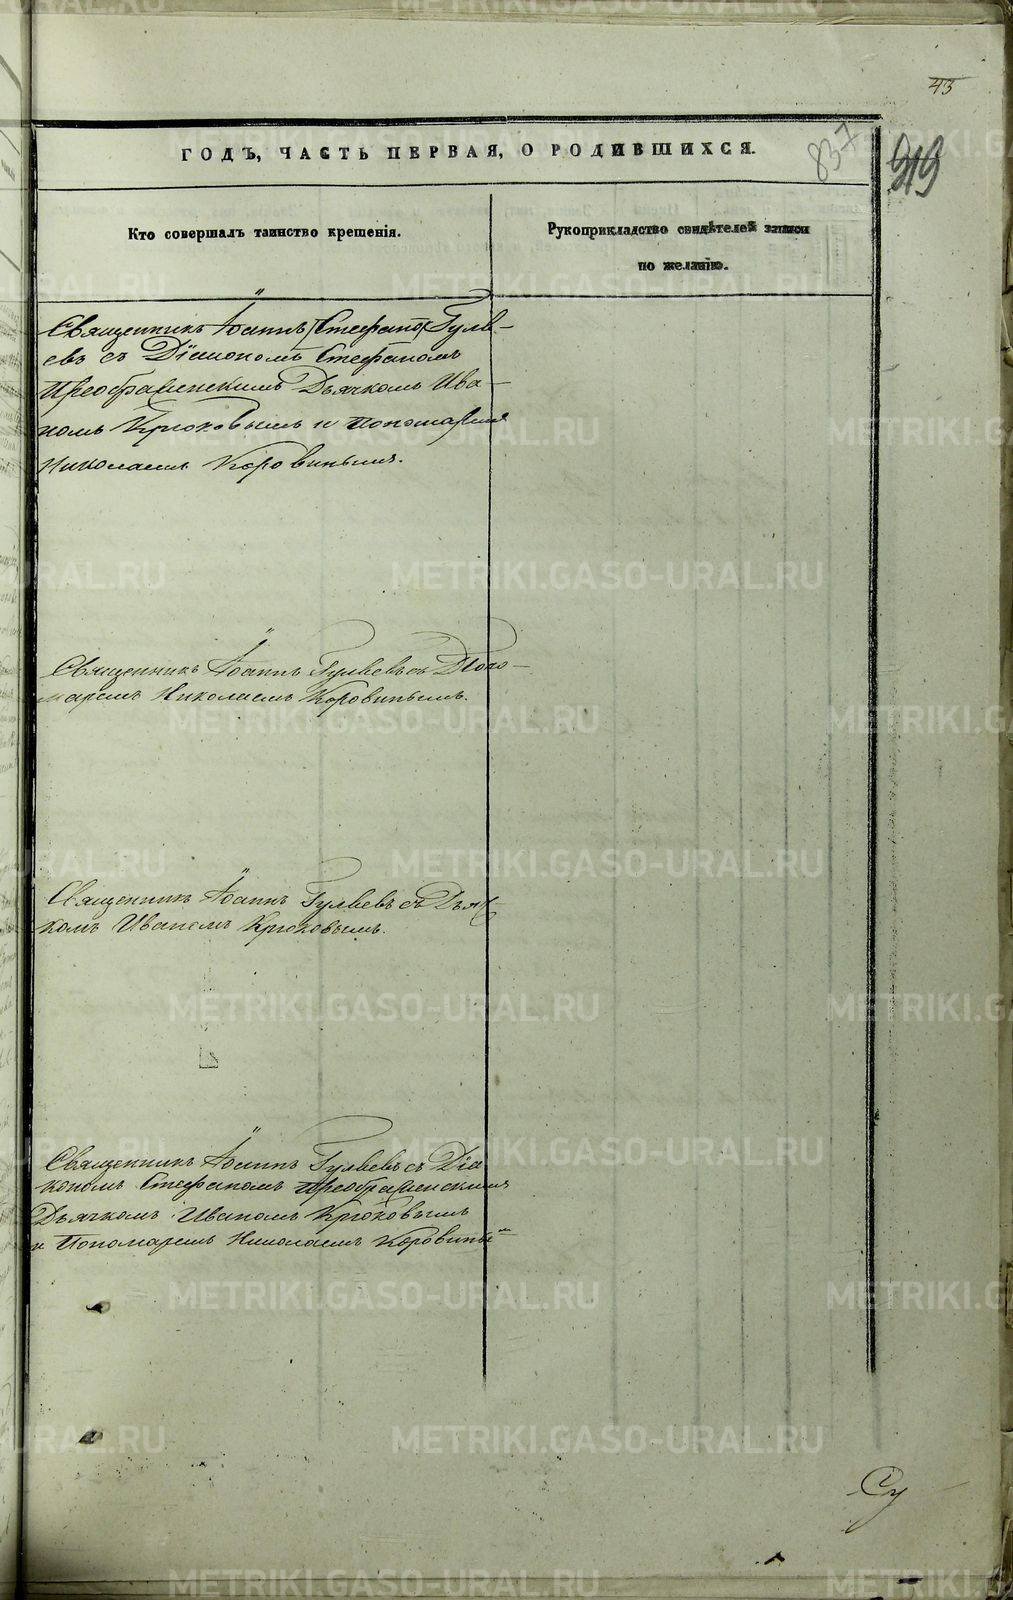 43
ГОДЪ, ЧАСТЬ ПЕРВАЯ, О РОДИВШИХСЯ.
837
319
Кто совершалъ таинство крещенія.
Рукоприкладство свидѣтелей записи
по желанію.
Священникъ Іоаннъ (Стефано) Гуля-
евъ съ Діакономъ Стефаномъ
Преображенскимъ Дьячкомъ Ива-
номъ Крюковымъ и Пономаремъ
Николаемъ Коровинымъ.
Священникъ Іоаннъ Гуляевъ съ Поно-
маремъ Николаемъ Коровинымъ.
Священникъ Іоаннъ Гуляевъ съ Дьяч
комъ Иваномъ Крюковымъ.
Священникъ Іоаннъ Гуляевъ съ Діа
кономъ Стефаномъ Преображенскимъ
Дьячкомъ Иваномъ Крюковымъ
и Пономаремъ Николаемъ Коровины мъ
Су
METRIKI.GASO-URAL.RU